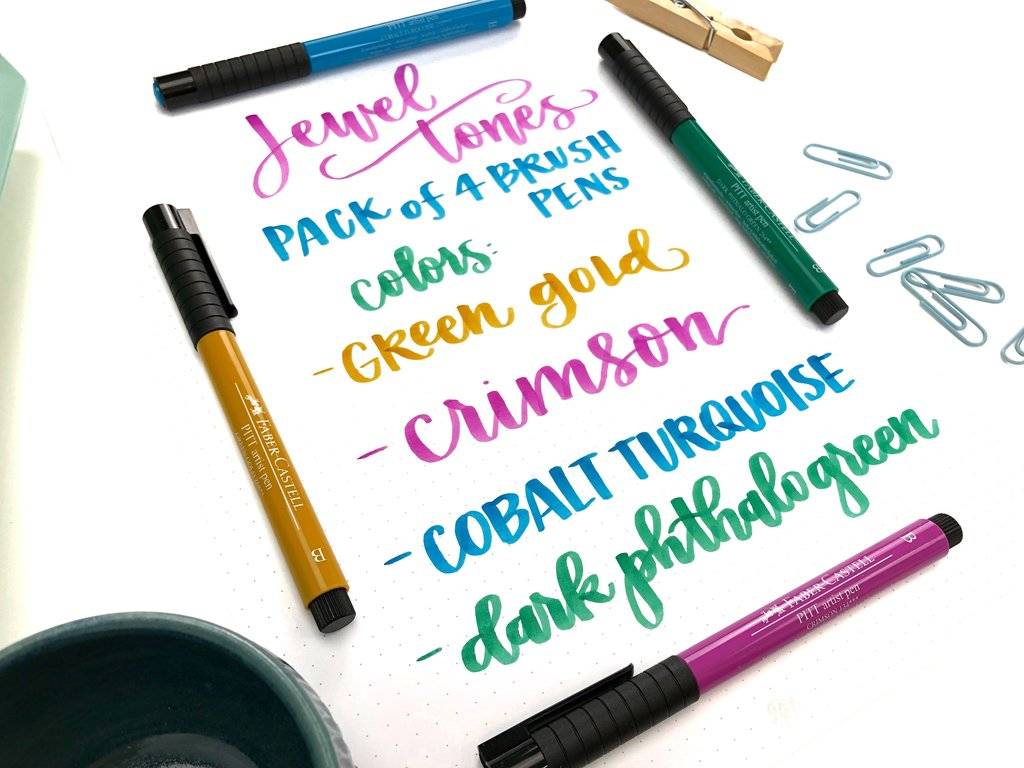 Jewel
tones
PACK of 4 BRUSH
PENS
colors:
- GReen gold
- crimson
- COBALT TURQUOISE
- dark phthalo green
PITT artist pen
B
FABER-CASTELL
PITT artist pen
B
FABER-CASTELL
PITT artist pen
B
FABER-CASTELL
PITT artist pen
CRIMSON
B